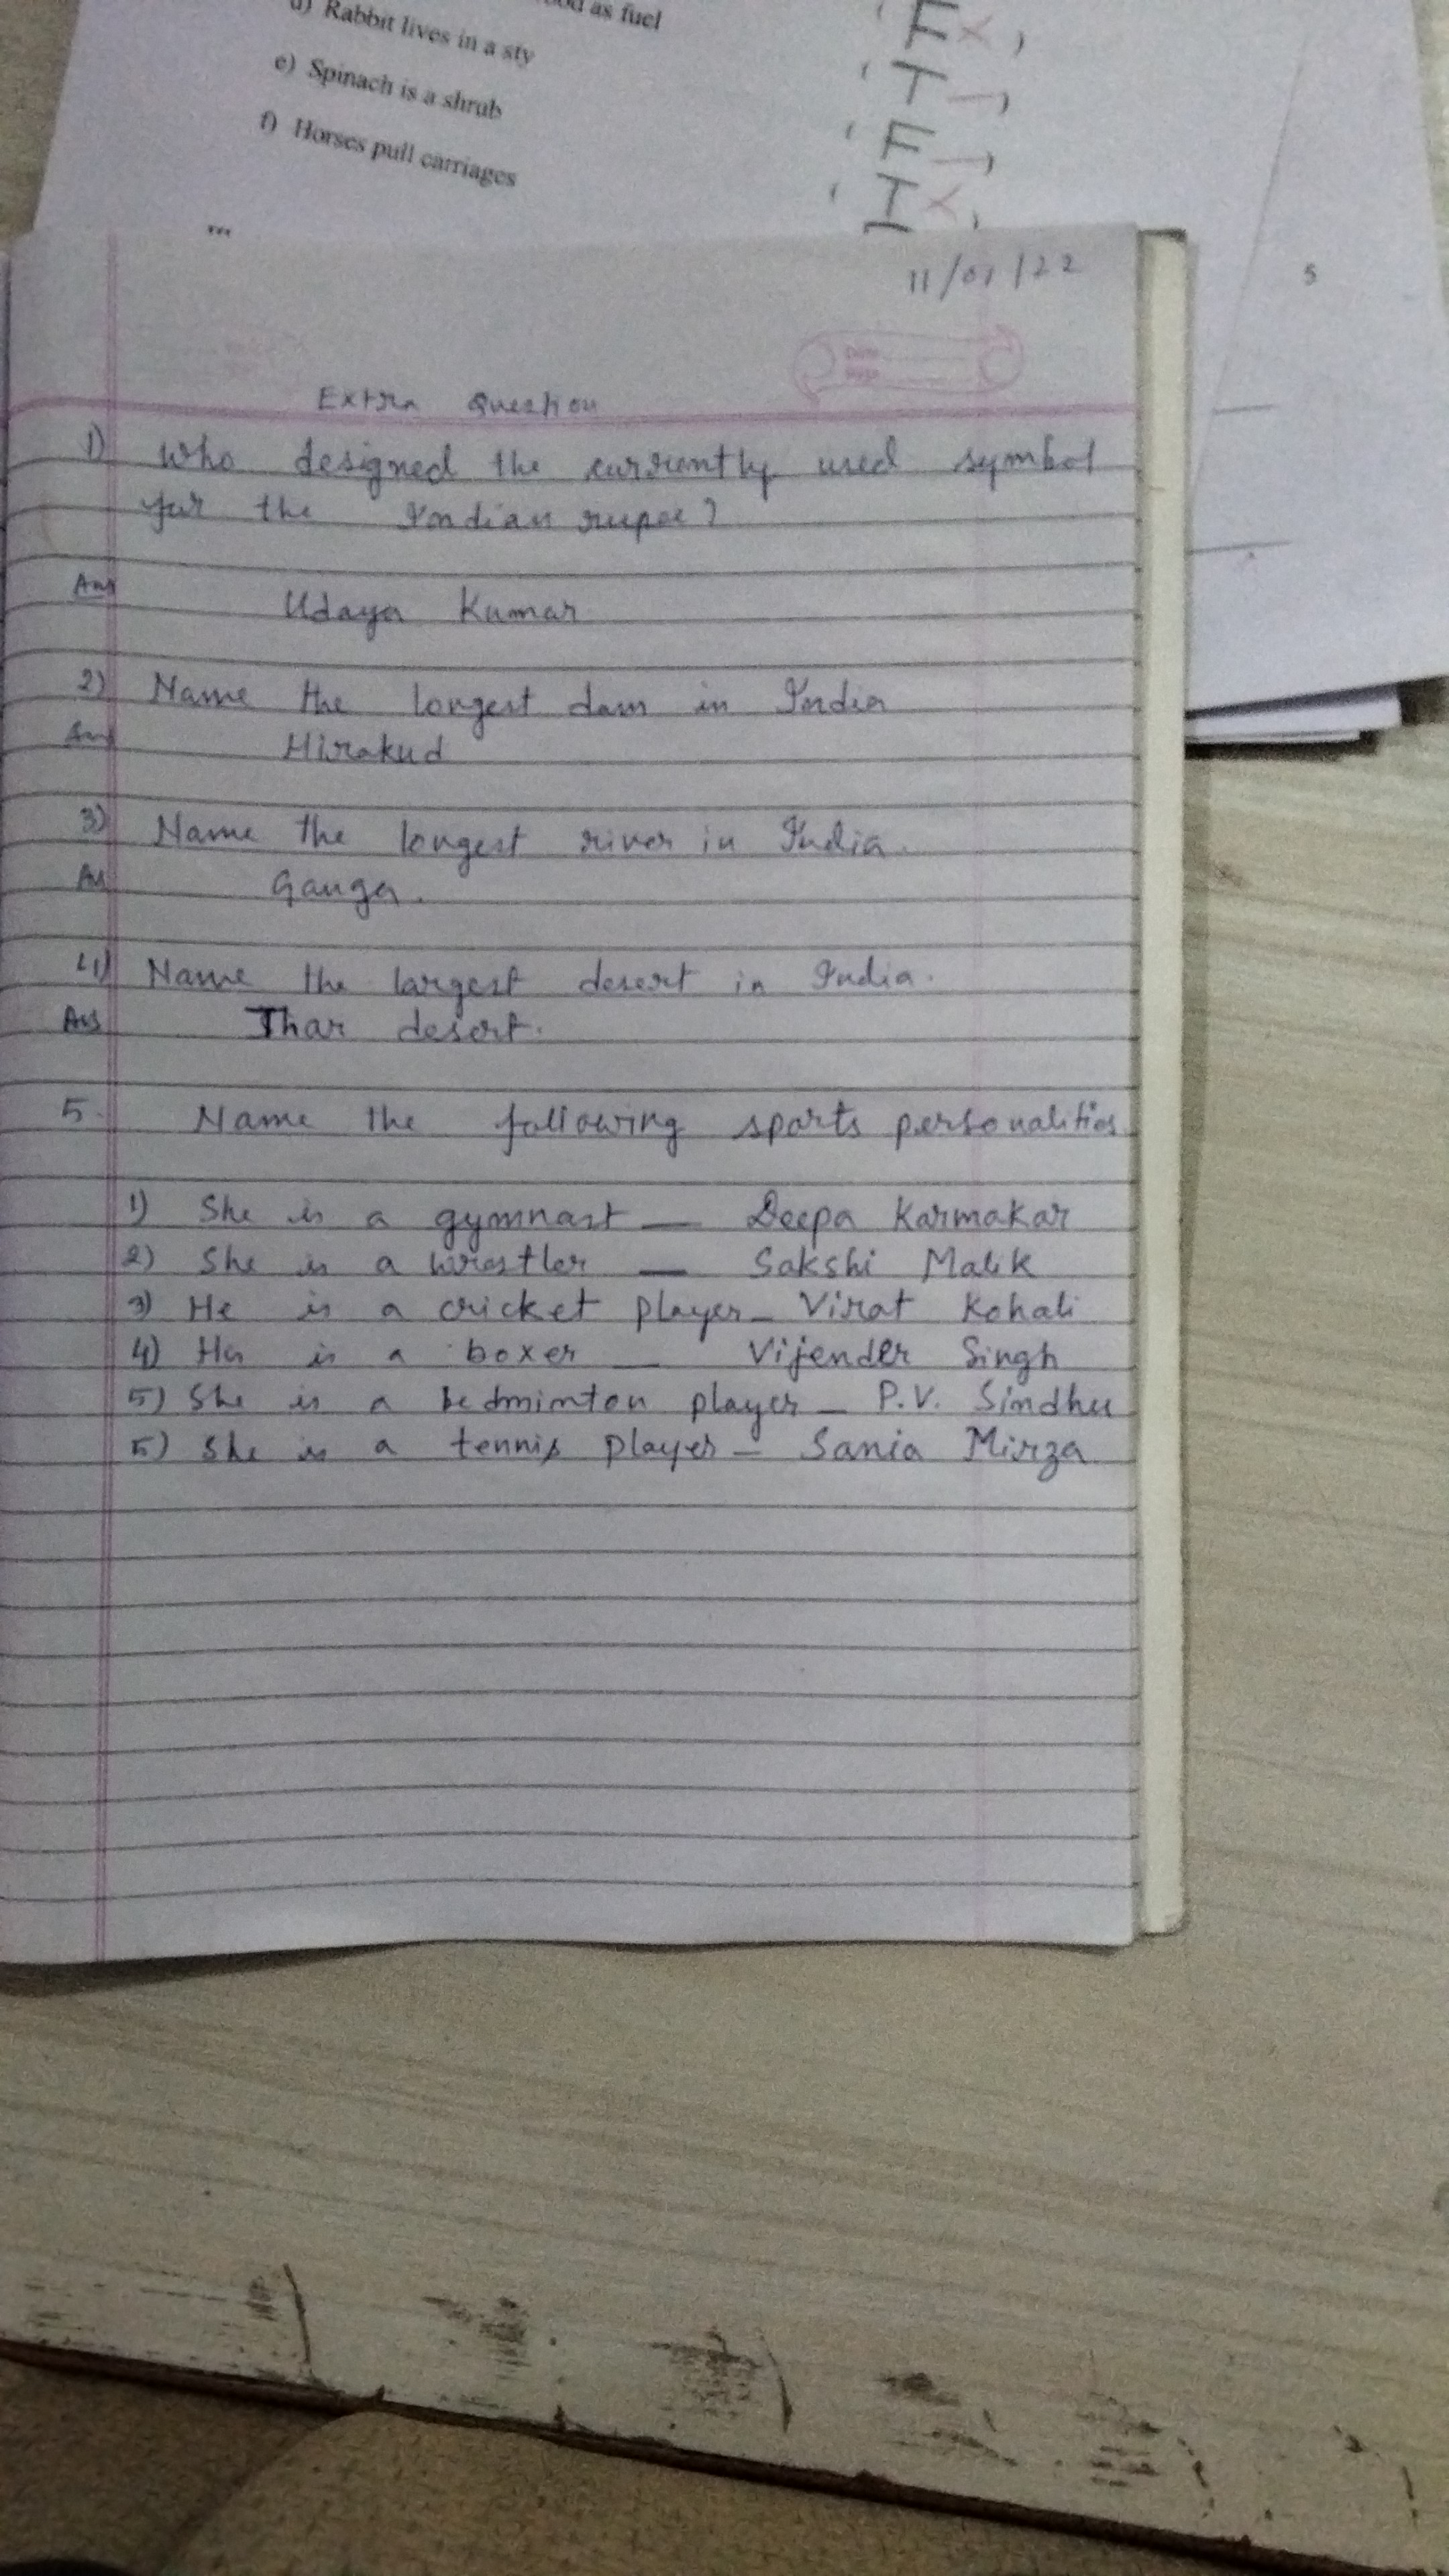 as fuel
d) Rabbit lives in a sty
e) Spinach is a shrub
f) Horses pull carriages
F
T
F
T
5
11/01/22
Extra Question
1) Who designed the currently used symbol
for the Indian rupee?
Ans Udaya Kumar
2) Name the longest dam in India
Ans Hirakud
3) Name the longest river in India.
An Ganga.
4) Name the largest desert in India.
Ans Thar desert.
5. Name the following sports personalities
1) She is a gymnast — Deepa Karmakar
2) She is a wrestler — Sakshi Malik
3) He is a cricket player – Virat Kohali
4) He is a boxer — Vijender Singh
5) She is a bedminton player – P.V. Sindhu
5) She is a tennis player – Sania Mirza